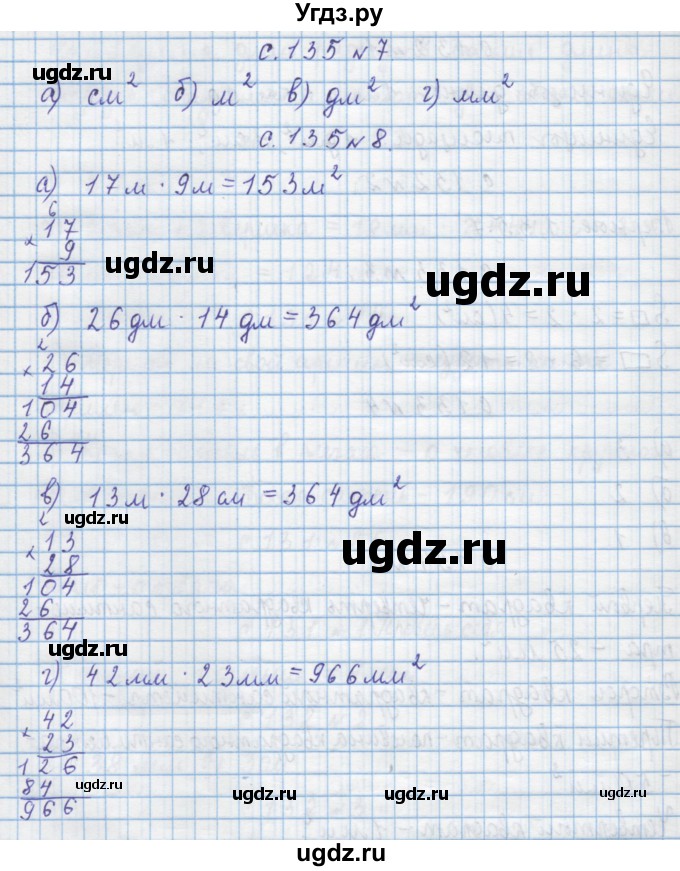 Угдз.ру
с. 135 №7
ugdz.ru
а) см² б) м² в) дм² г) мм²
с. 135 №8.
ugdz.ru
а) 17м · 9м = 153м²
6
× 17
9
153
ugdz.ru
ugdz.ru
б) 26дм · 14дм = 364дм²
2
× 26
14
104
26
364
ugdz.ru
в) 13м · 28см = 364дм²
ugdz.ru
2
× 13
28
104
26
364
ugdz.ru
ugdz.ru
г) 42мм · 23мм = 966мм²
× 42
23
126
84
966
ugdz.ru
ugdz.ru
ugdz.ru
ugdz.ru
ugdz.ru